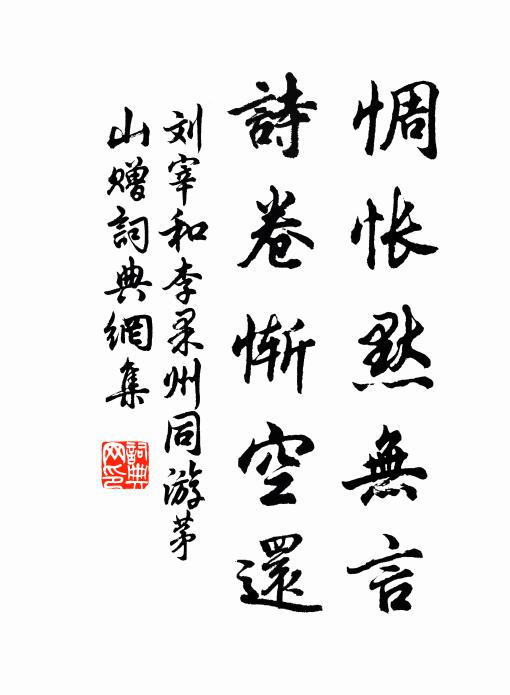 惆怅默無言
詩卷慚空還
刘宰和李果州同游茅
山赠詞典網集
詞典
网印